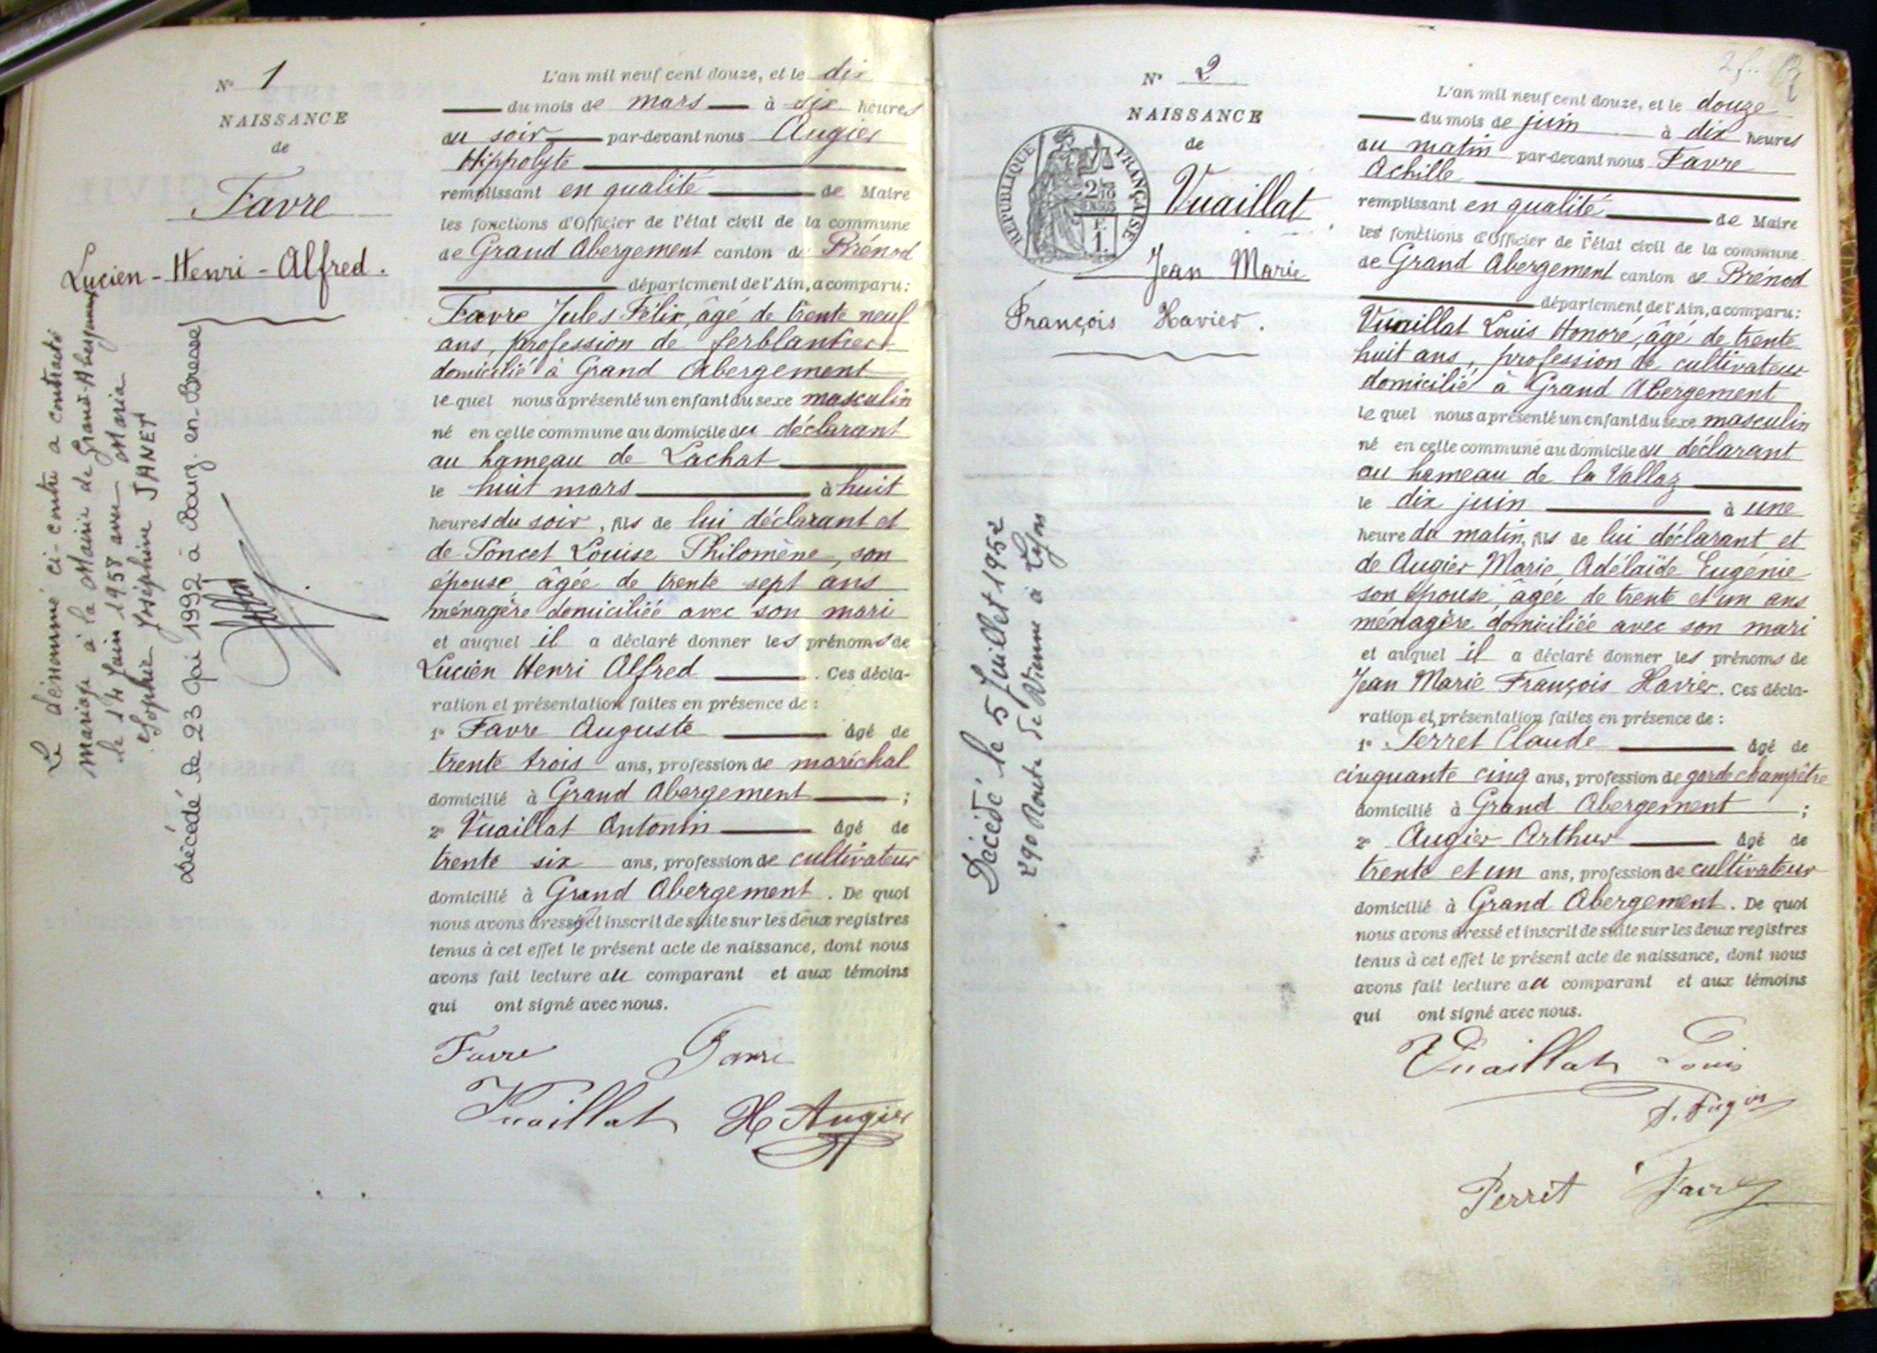 N° 1
NAISSANCE
de
Favre
Lucien - Henri - Alfred.
Le dénommé ci-contre a contracté
mariage à la Mairie de Grand-Abergement
le 14 Juin 1958 avec Maria
Sophie Joséphine JANET
Décédé le 23 Mai 1992 à Bourg-en-Bresse
L'an mil neuf cent douze, et le dix
du mois de mars à six heures
du soir par-devant nous Augier
Hippolyte
remplissant en qualité de Maire
les fonctions d'Officier de l'état civil de la commune
de Grand Abergement canton de Brénod
département de l'Ain, a comparu:
Favre Jules Félix, âgé de trente neuf
ans, profession de ferblantier
domicilié à Grand Abergement
lequel nous a présenté un enfant du sexe masculin
né en cette commune au domicile du déclarant
au hameau de Lachat
le huit mars à huit
heures du soir, fils de lui déclarant et
de Poncet Louise Philomène, son
épouse âgée de trente sept ans
ménagère domiciliée avec son mari
et auquel il a déclaré donner les prénoms de
Lucien Henri Alfred. Ces décla-
ration et présentation faites en présence de :
1° Favre Auguste âgé de
trente trois ans, profession de maréchal
domicilié à Grand Abergement ;
2° Vuaillat Antonin âgé de
trente six ans, profession de cultivateur
domicilié à Grand Abergement. De quoi
nous avons dressé et inscrit de suite sur les deux registres
tenus à cet effet le présent acte de naissance, dont nous
avons fait lecture au comparant et aux témoins
qui ont signé avec nous.
Favre Favre
Vuaillat H Augier
N° 2
NAISSANCE
de
RÉPUBLIQUE FRANÇAISE
Vuaillat
Jean Marie
François Xavier.
Décédé le 5 Juillet 1952
290 Route de Vienne à Lyon
L'an mil neuf cent douze, et le douze
du mois de juin à dix heures
du matin par-devant nous Favre
Achille
remplissant en qualité de Maire
les fonctions d'Officier de l'état civil de la commune
de Grand Abergement canton de Brénod
département de l'Ain, a comparu:
Vuaillat Louis Honoré, âgé de trente
huit ans, profession de cultivateur
domicilié à Grand Abergement
lequel nous a présenté un enfant du sexe masculin
né en cette commune au domicile du déclarant
au hameau de la Vallaz
le dix juin à une
heure du matin, fils de lui déclarant et
de Augier Marie Adélaïde Eugénie
son épouse âgée de trente et un ans
ménagère domiciliée avec son mari
et auquel il a déclaré donner les prénoms de
Jean Marie François Xavier. Ces décla-
ration et présentation faites en présence de :
1° Perret Claude âgé de
cinquante cinq ans, profession de garde champêtre
domicilié à Grand Abergement ;
2° Augier Arthur âgé de
trente et un ans, profession de cultivateur
domicilié à Grand Abergement. De quoi
nous avons dressé et inscrit de suite sur les deux registres
tenus à cet effet le présent acte de naissance, dont nous
avons fait lecture au comparant et aux témoins
qui ont signé avec nous.
Vuaillat Louis
A. Augier
Perret Favre